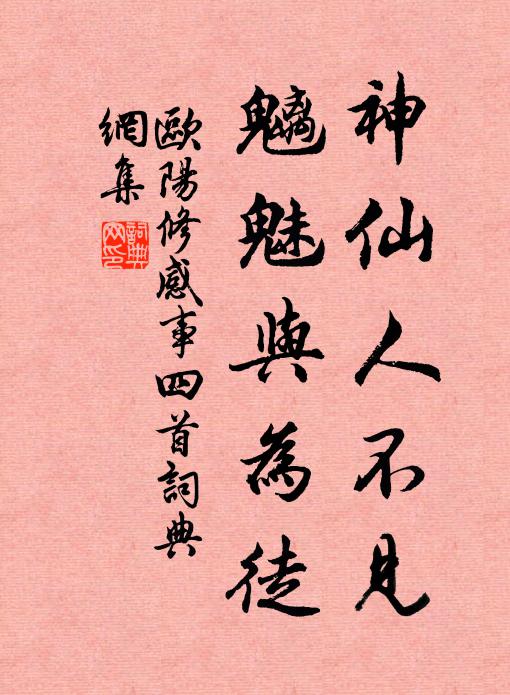 神仙人不見
魑魅與為徒
歐陽修感事四首詞典
網集
詞典
网印